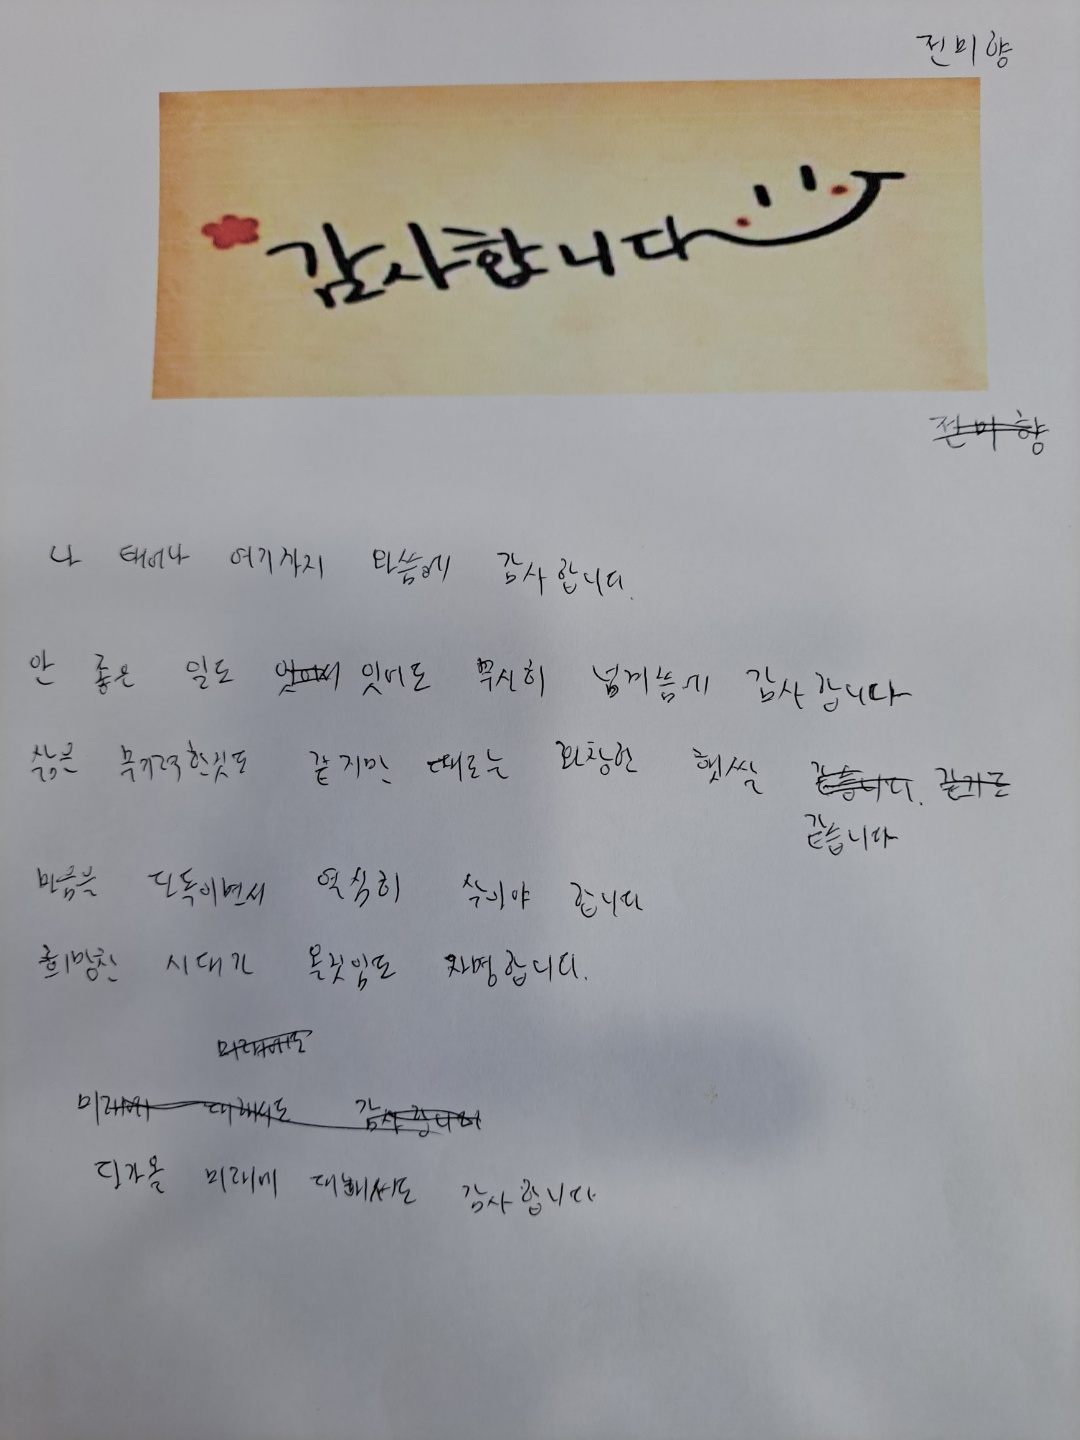 전미향
감사합니다
전미향
나 태어나 여기까지 와씀에 감사합니다.
안 좋은 일도 잇어도 무사히 넘게씀에 감사합니다
삶은 무기력한것도 같지만 때로는 화창한 햇쌀
같습니다
만큼을 다독이면서 열심히 살아야 합니다
희망찬 시대가 올것임도 자명합니다.
미래에도
미래에 대해서도 감사합니다
다가올 미래에 대해서도 감사합니다